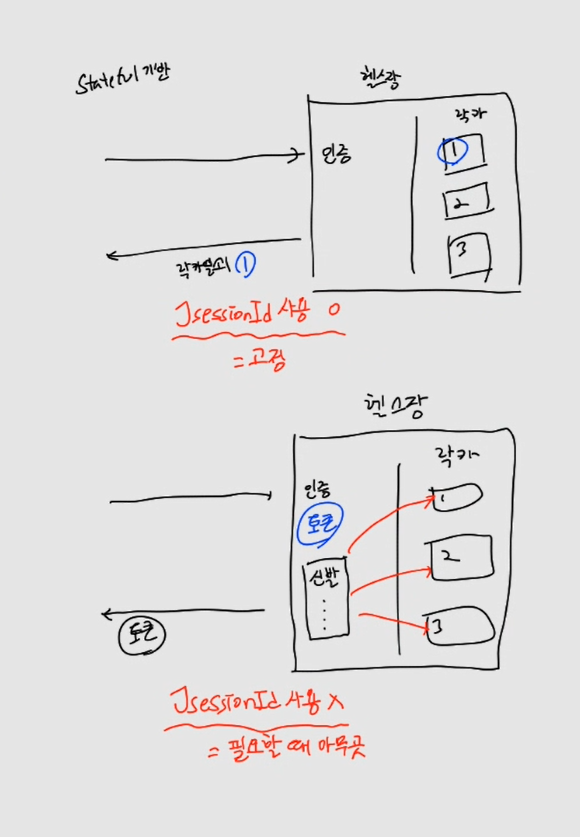 Stateful 기반
헬스장
락카
인증
1
2
3
락카열쇠 1
JsessionId 사용 O
= 고정
헬스장
락카
인증
토큰
1
신발
2
3
토큰
JsessionId 사용 X
= 필요할 때 아무곳